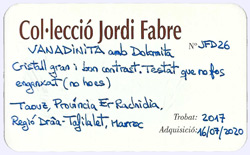 Col·lecció Jordi Fabre
VANADINITA amb Dolomita Nº JFD26
Cristall gran i bon contrast. Testat que no fos
enginxat (no ho és)
Taouz, Província Er-Rachidia,
Regió Drâa-Tafilalet, Marroc
Trobat: 2017
Adquisició: 16/07/2020